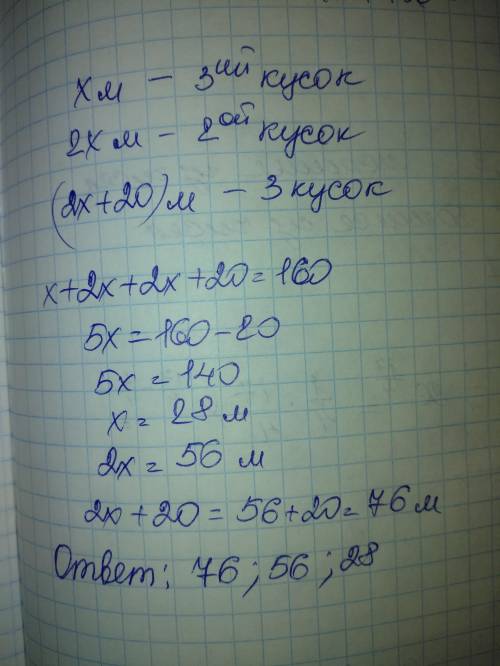 x м – 3ий кусок
2x м – 2ой кусок
(2x+20) м – 3 кусок
x+2x+2x+20=160
5x=160-20
5x=140
x=28 м
2x=56 м
2x+20=56+20=76 м
Ответ: 76; 56; 28